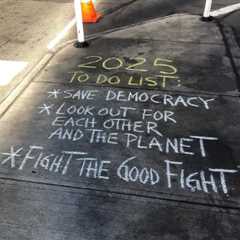 2025
TO DO LIST:
* SAVE DEMOCRACY
* LOOK OUT FOR
EACH OTHER
AND THE PLANET
* FIGHT THE GOOD FIGHT